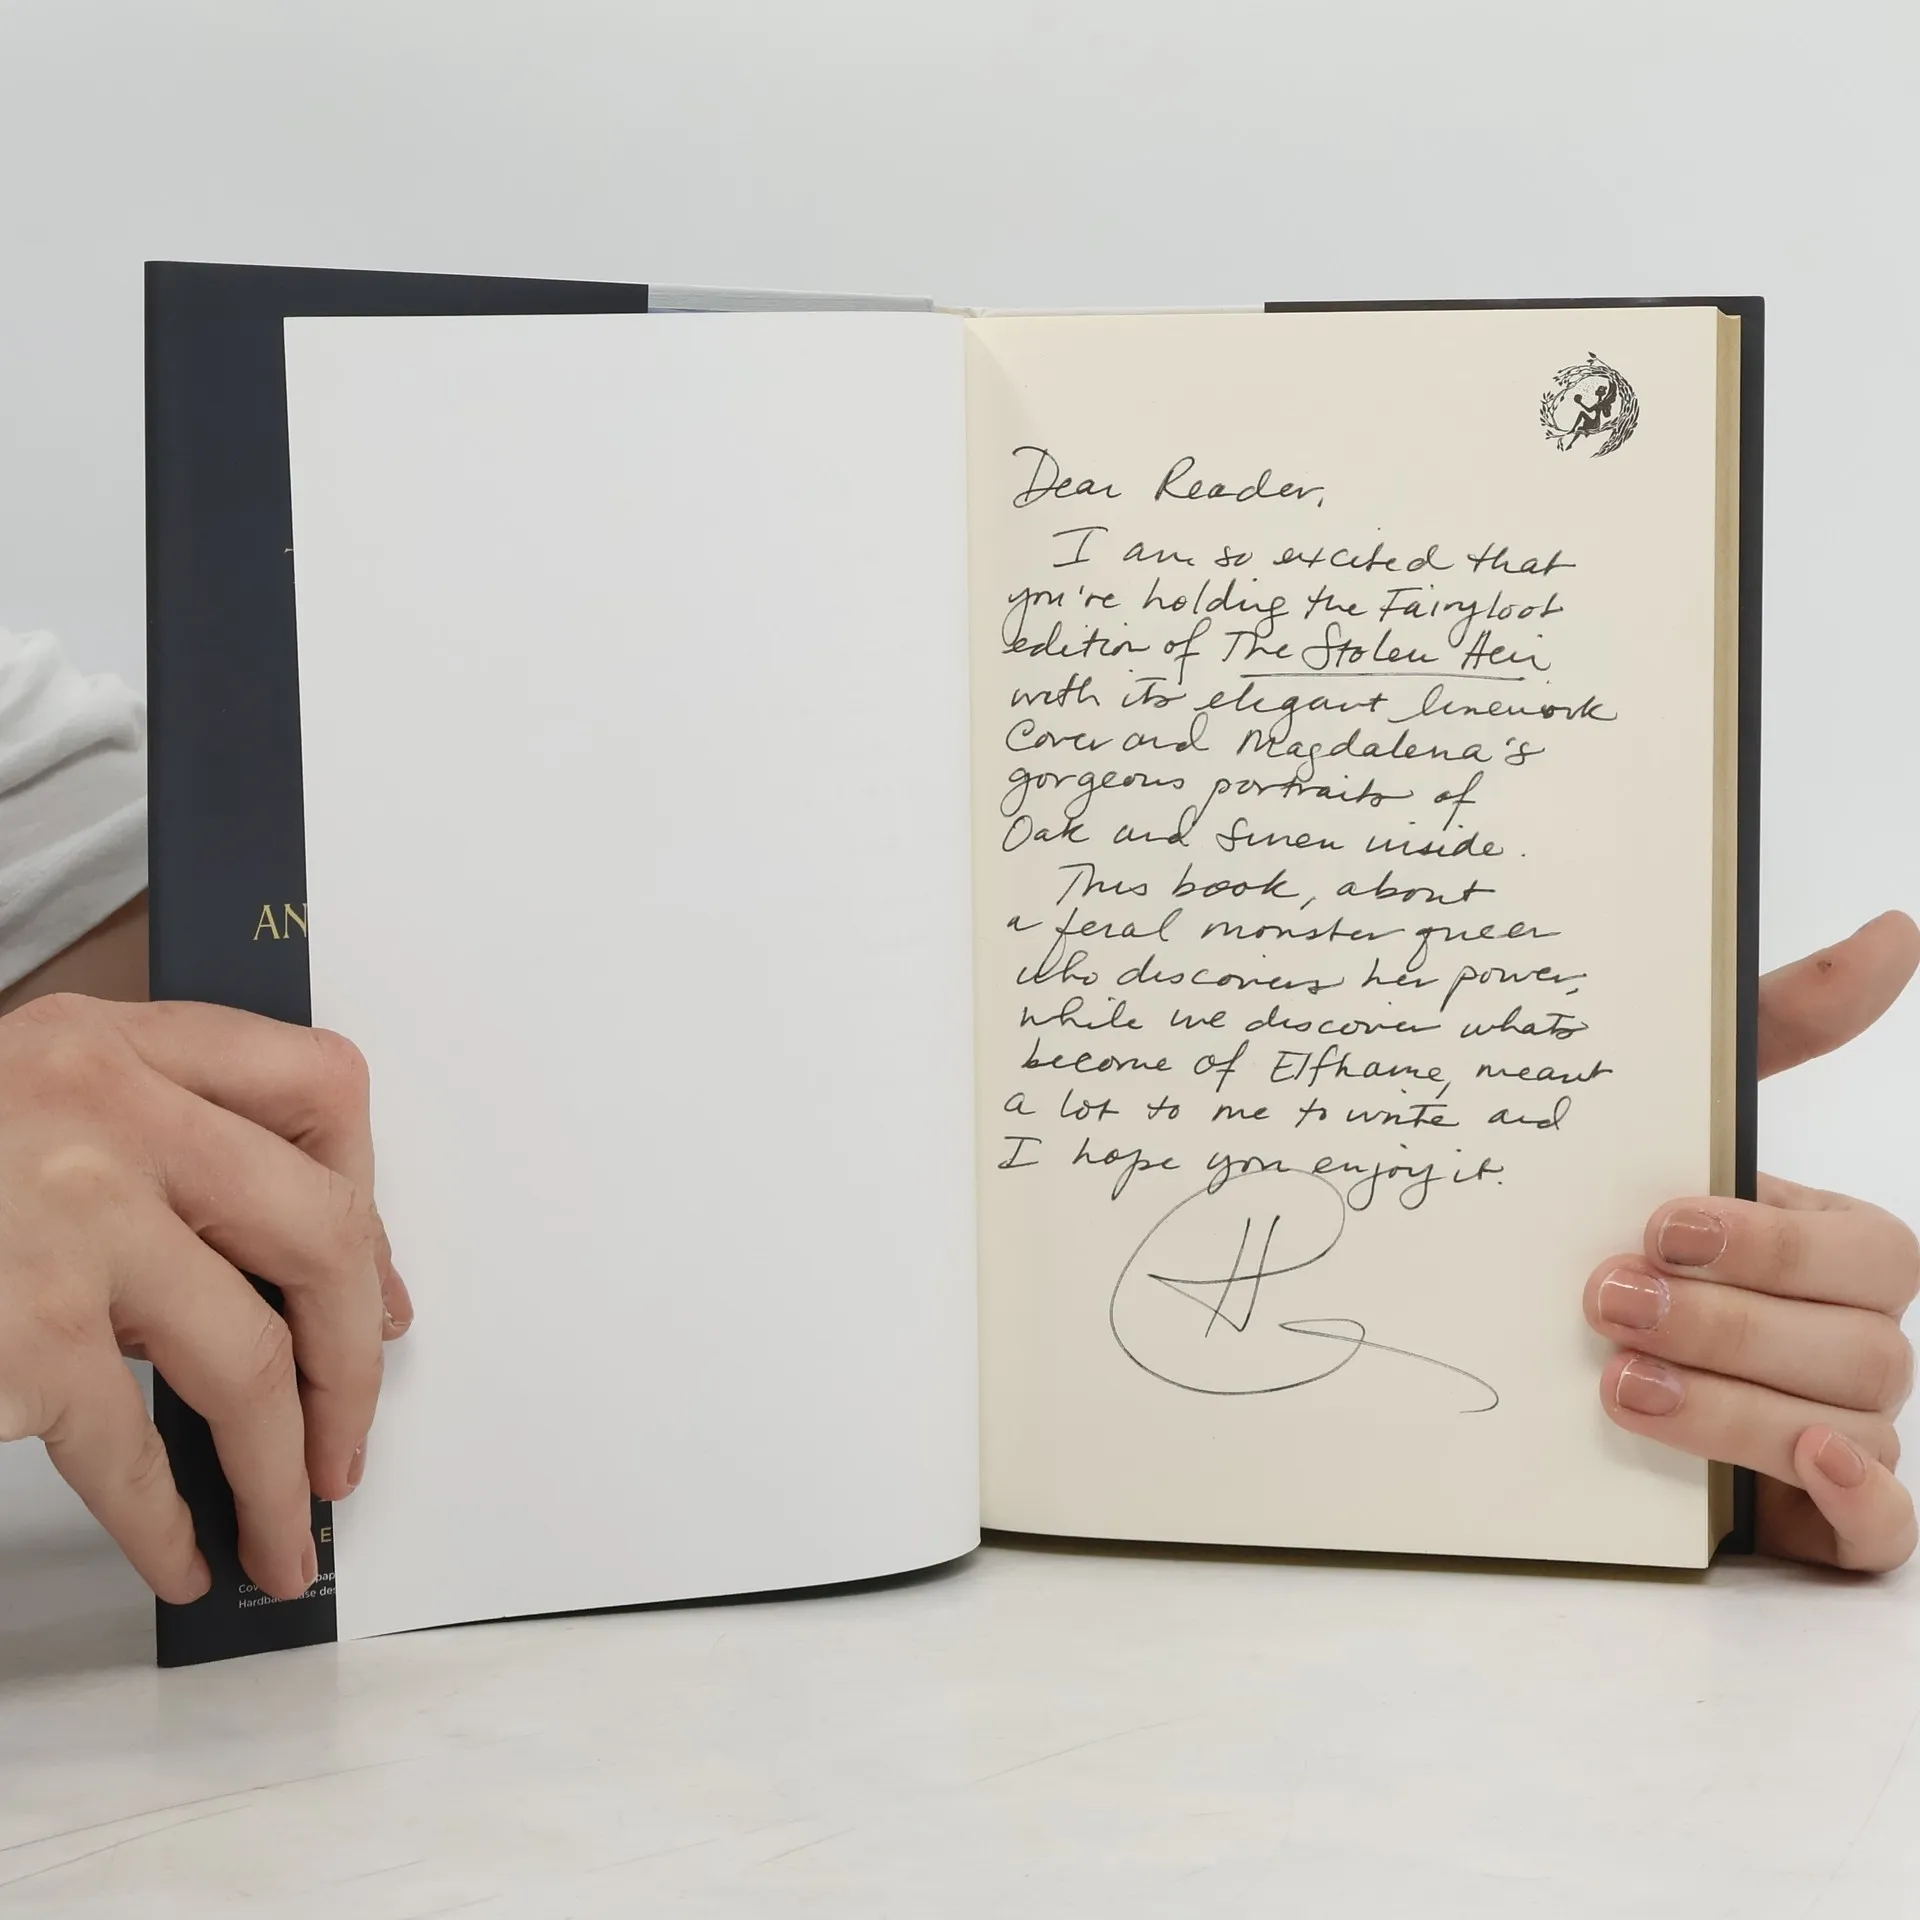 AN
E
Cov pap
Hardba se des
Dear Reader,
I am so excited that
you're holding the Fairyloot
edition of The Stolen Heir
with its elegant linework
Cover and Magdalena's
gorgeous portraits of
Oak and Suren inside.
This book, about
a feral monster queen
who discovers her power,
while we discover whats
become of Elfhame, meant
a lot to me to write and
I hope you enjoy it.